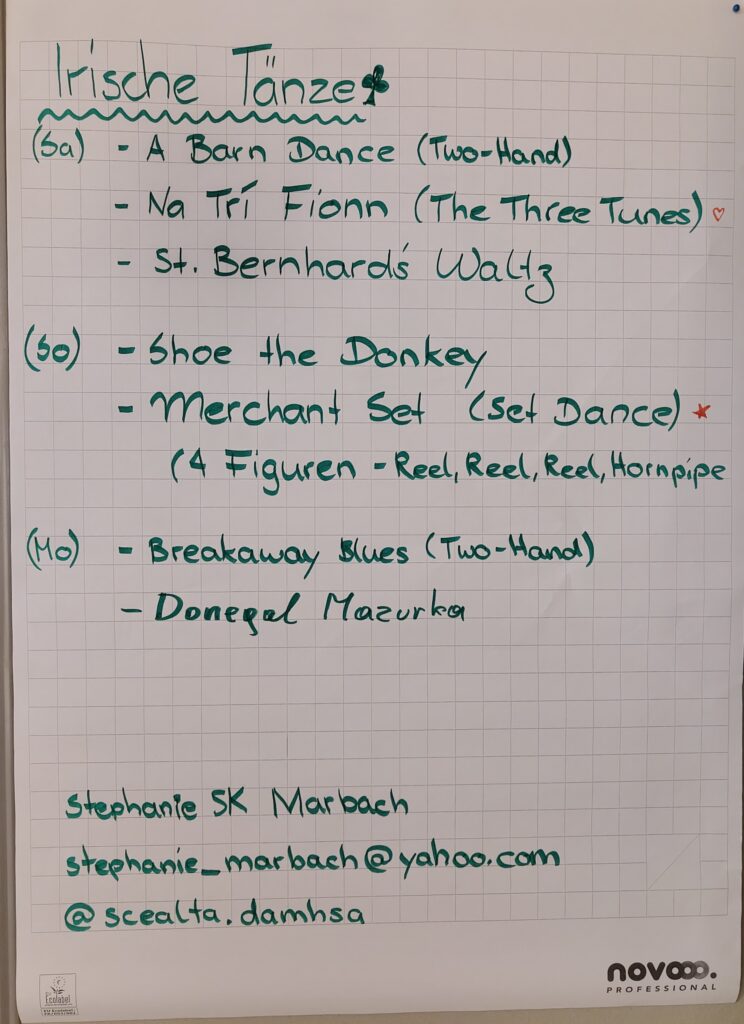 Irische Tänze
(Sa) - A Barn Dance (Two-Hand)
- Na Trí Fionn (The Three Tunes)
- St. Bernhard's Waltz
(So) - Shoe the Donkey
- Merchant Set (Set Dance)
(4 Figuren - Reel, Reel, Reel, Hornpipe
(Mo) - Breakaway Blues (Two-Hand)
- Donegal Mazurka
Stephanie SK Marbach
stephanie_marbach@yahoo.com
@scealta.damhsa
novooo.
PROFESSIONAL
Ecolabel